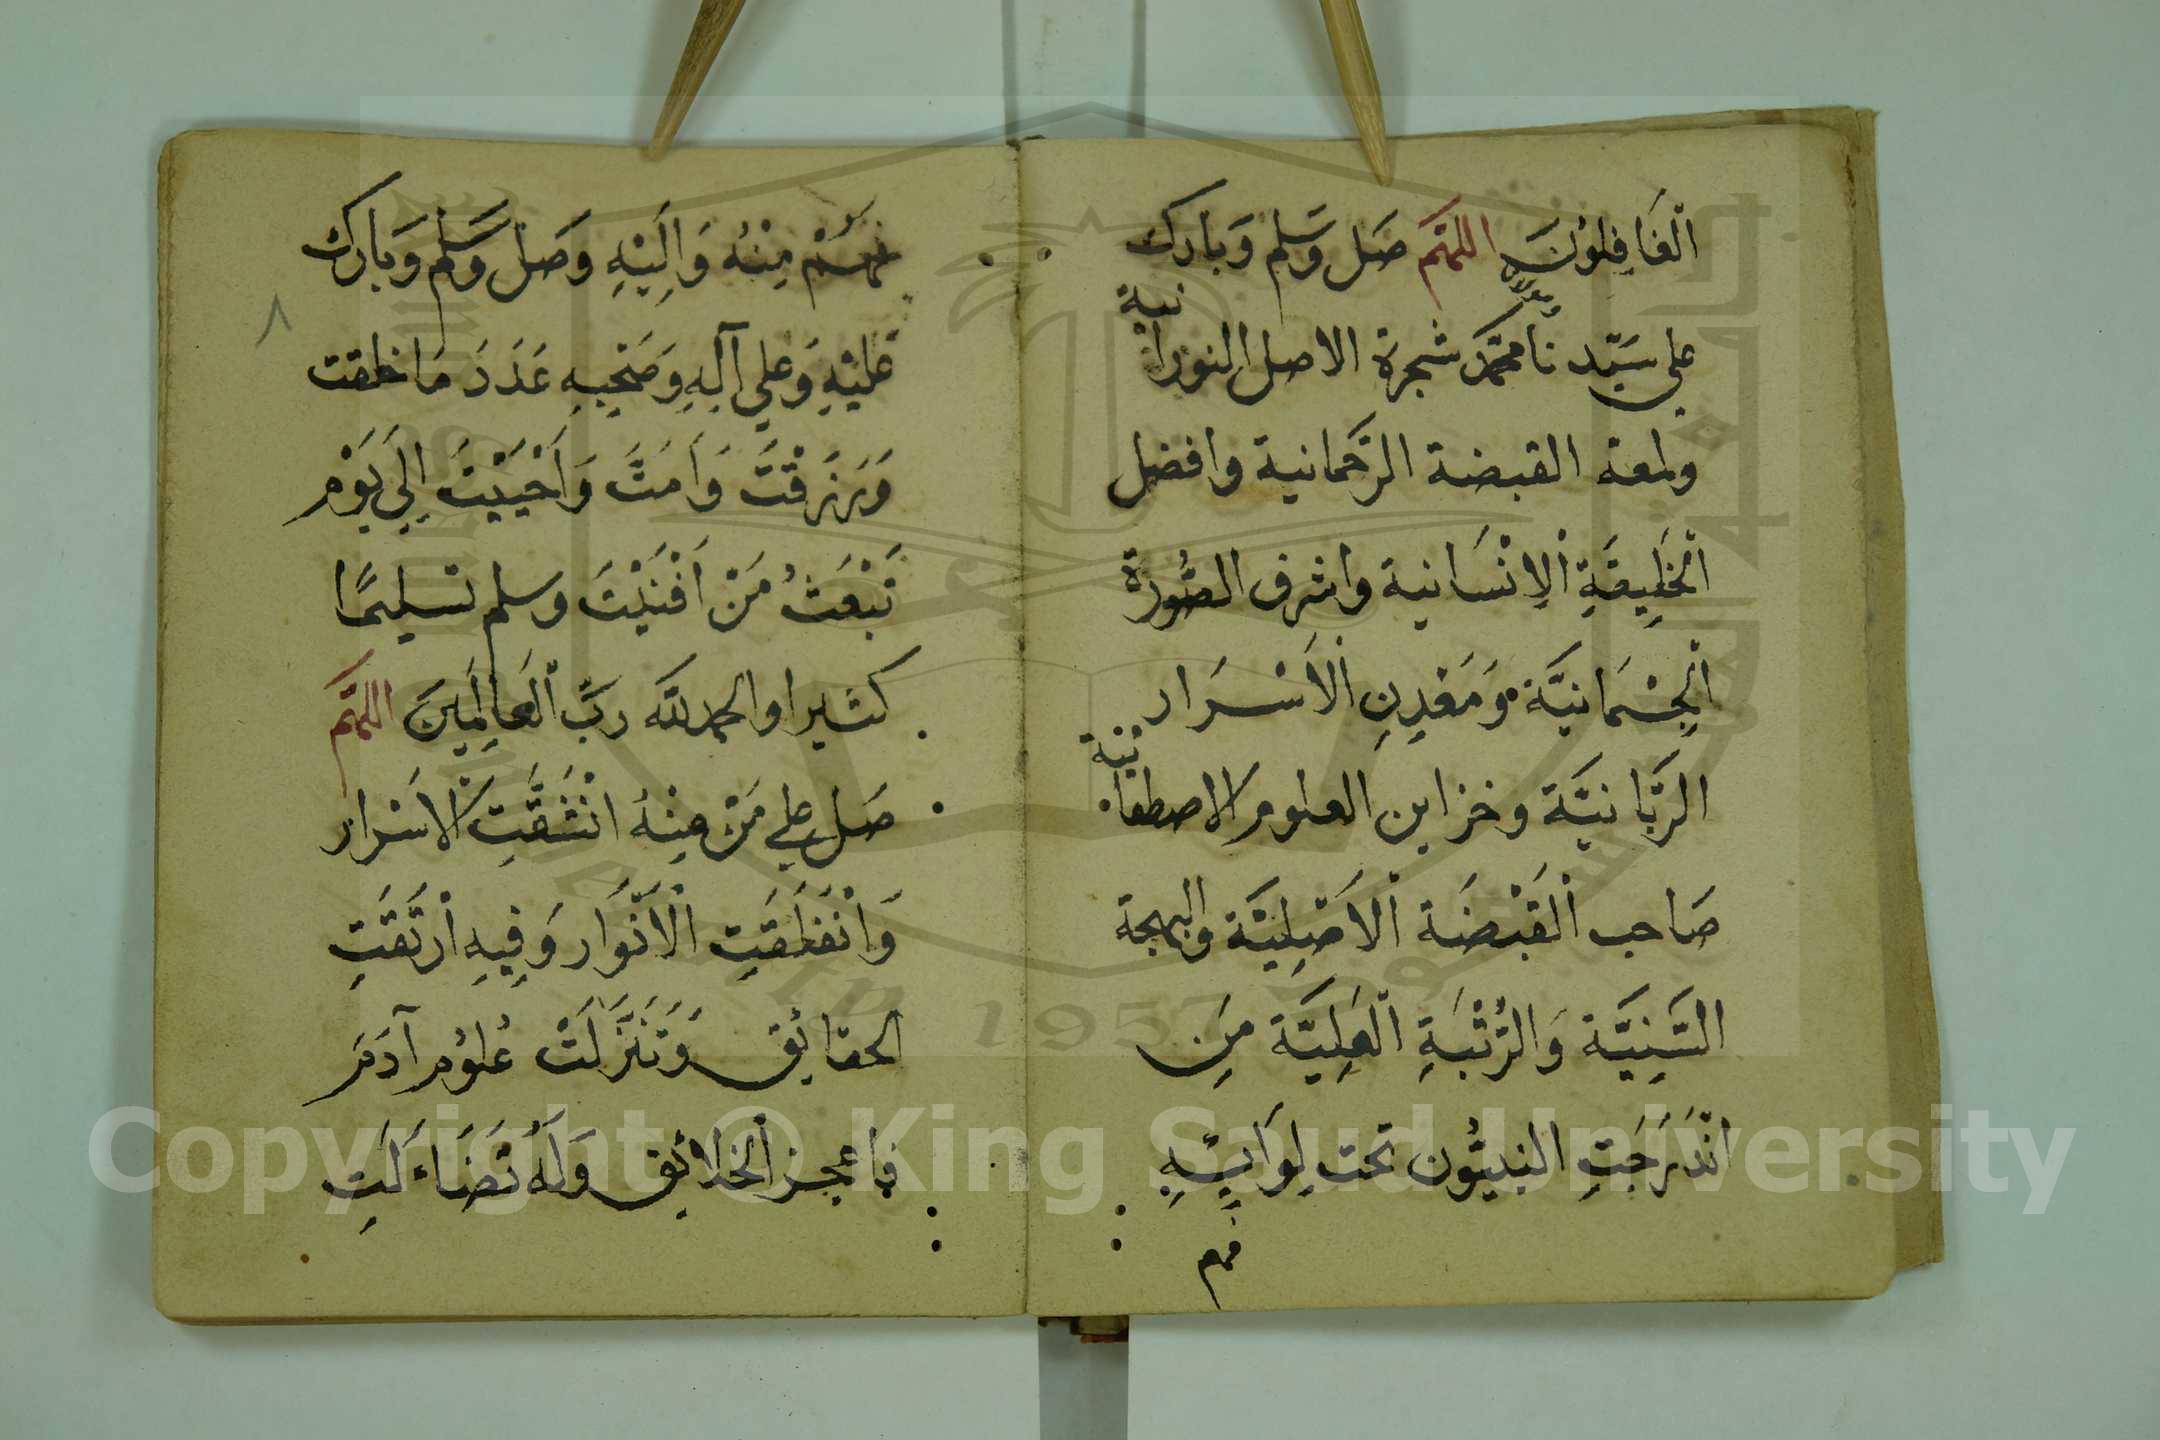 الْغَافِلُوْنَ اللهم صَل وَسَلم وَبارك
علي سَيّد نا ومولانا محمّد شجرة الاصل النورانية
ولمعة القبضة الرحمانية وافضل
الْخَلِيقَةِ الْاِنْسَانية واشرف الصُّورَة
الْجِسْمَانيَّة وَمَعْدِنِ الْاَسْرَار
الرَّبّانيَّة وخزاين العلوم الاصطفائية
صَاحب الْقَبْضَة الْاَصْلِيَّة والبهجة
السَّنِيَّة وَالرُّتْبَةِ الْعَلِيَّة مَنِ
انْدَرَجَتِ النبيُّون تحت لِوَائِهِ
فهم
فَهُمْ مِنْهُ وَاِلَيْهِ وَصَلْ وَسَلم وَبارك
عَليْهِ وَعلي آلِهِ وَصَحْبِهِ عَدَدَ مَا خلقت
وَرَزَقْتَ وَاَمَتَّ وَاَحْيَيْتَ اِلَي يَوْمِ
تَبْعَثُ مَنْ اَفْنَيْتَ وسلم تسليمًا
كثيرا والحمد لله رَبِّ الْعَالَمِينَ اللهم
صَل علي مَنْ مِنْهُ انْشَقَّتِ الْاَسْرار
وَانْفَلَقَتِ الْاَنْوَار وَفِيهِ ارْتَقَتِ
الحقائِق وَتَنَزَّلَتْ عُلُوْم آدَمَ
فاعجز الخلائق وَلَهُ تَضَاءَلَتِ
٨
Copyright © King Saud University
1957